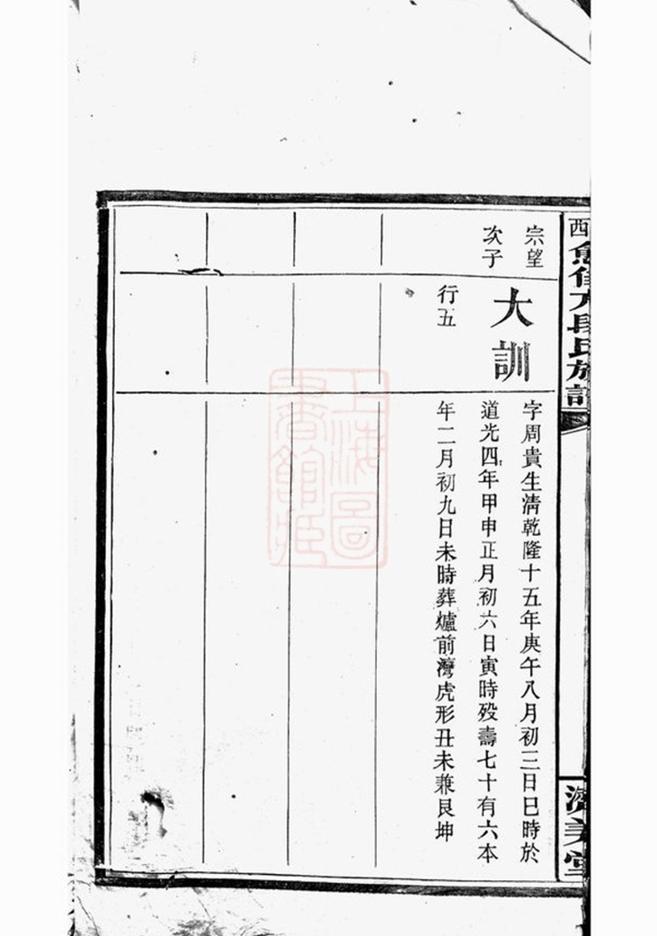 宗望
次子
大訓
行五
字周貴生清乾隆十五年庚午八月初三日巳時於
道光四年甲申正月初六日寅時殁壽七十有六本
年二月初九日未時葬爐前灣虎形丑未兼艮坤
西
段氏族譜
濟美堂
上海圖
書館藏